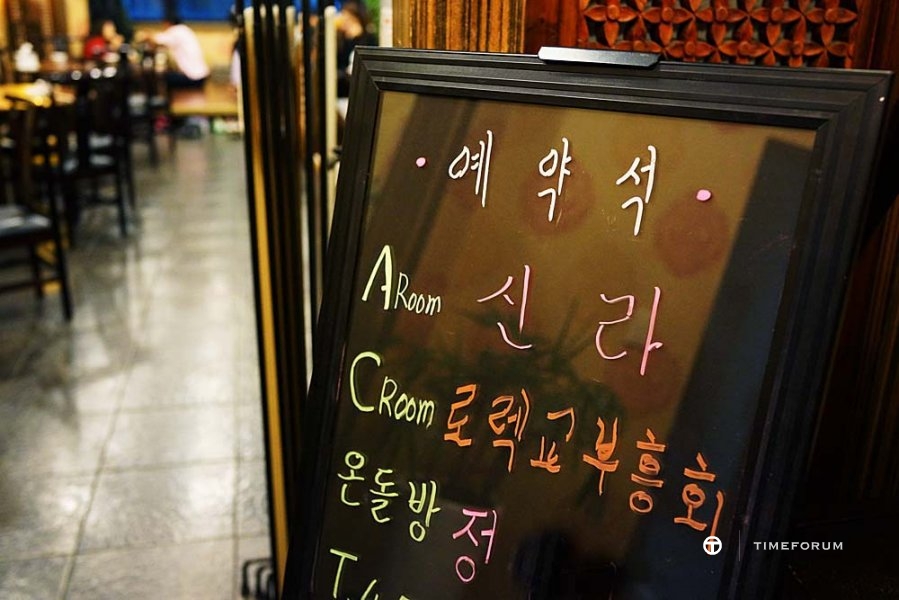 • 예약석 •
A Room 신라
C Room 로렉교부흥회
온돌방 정
TIMEFORUM